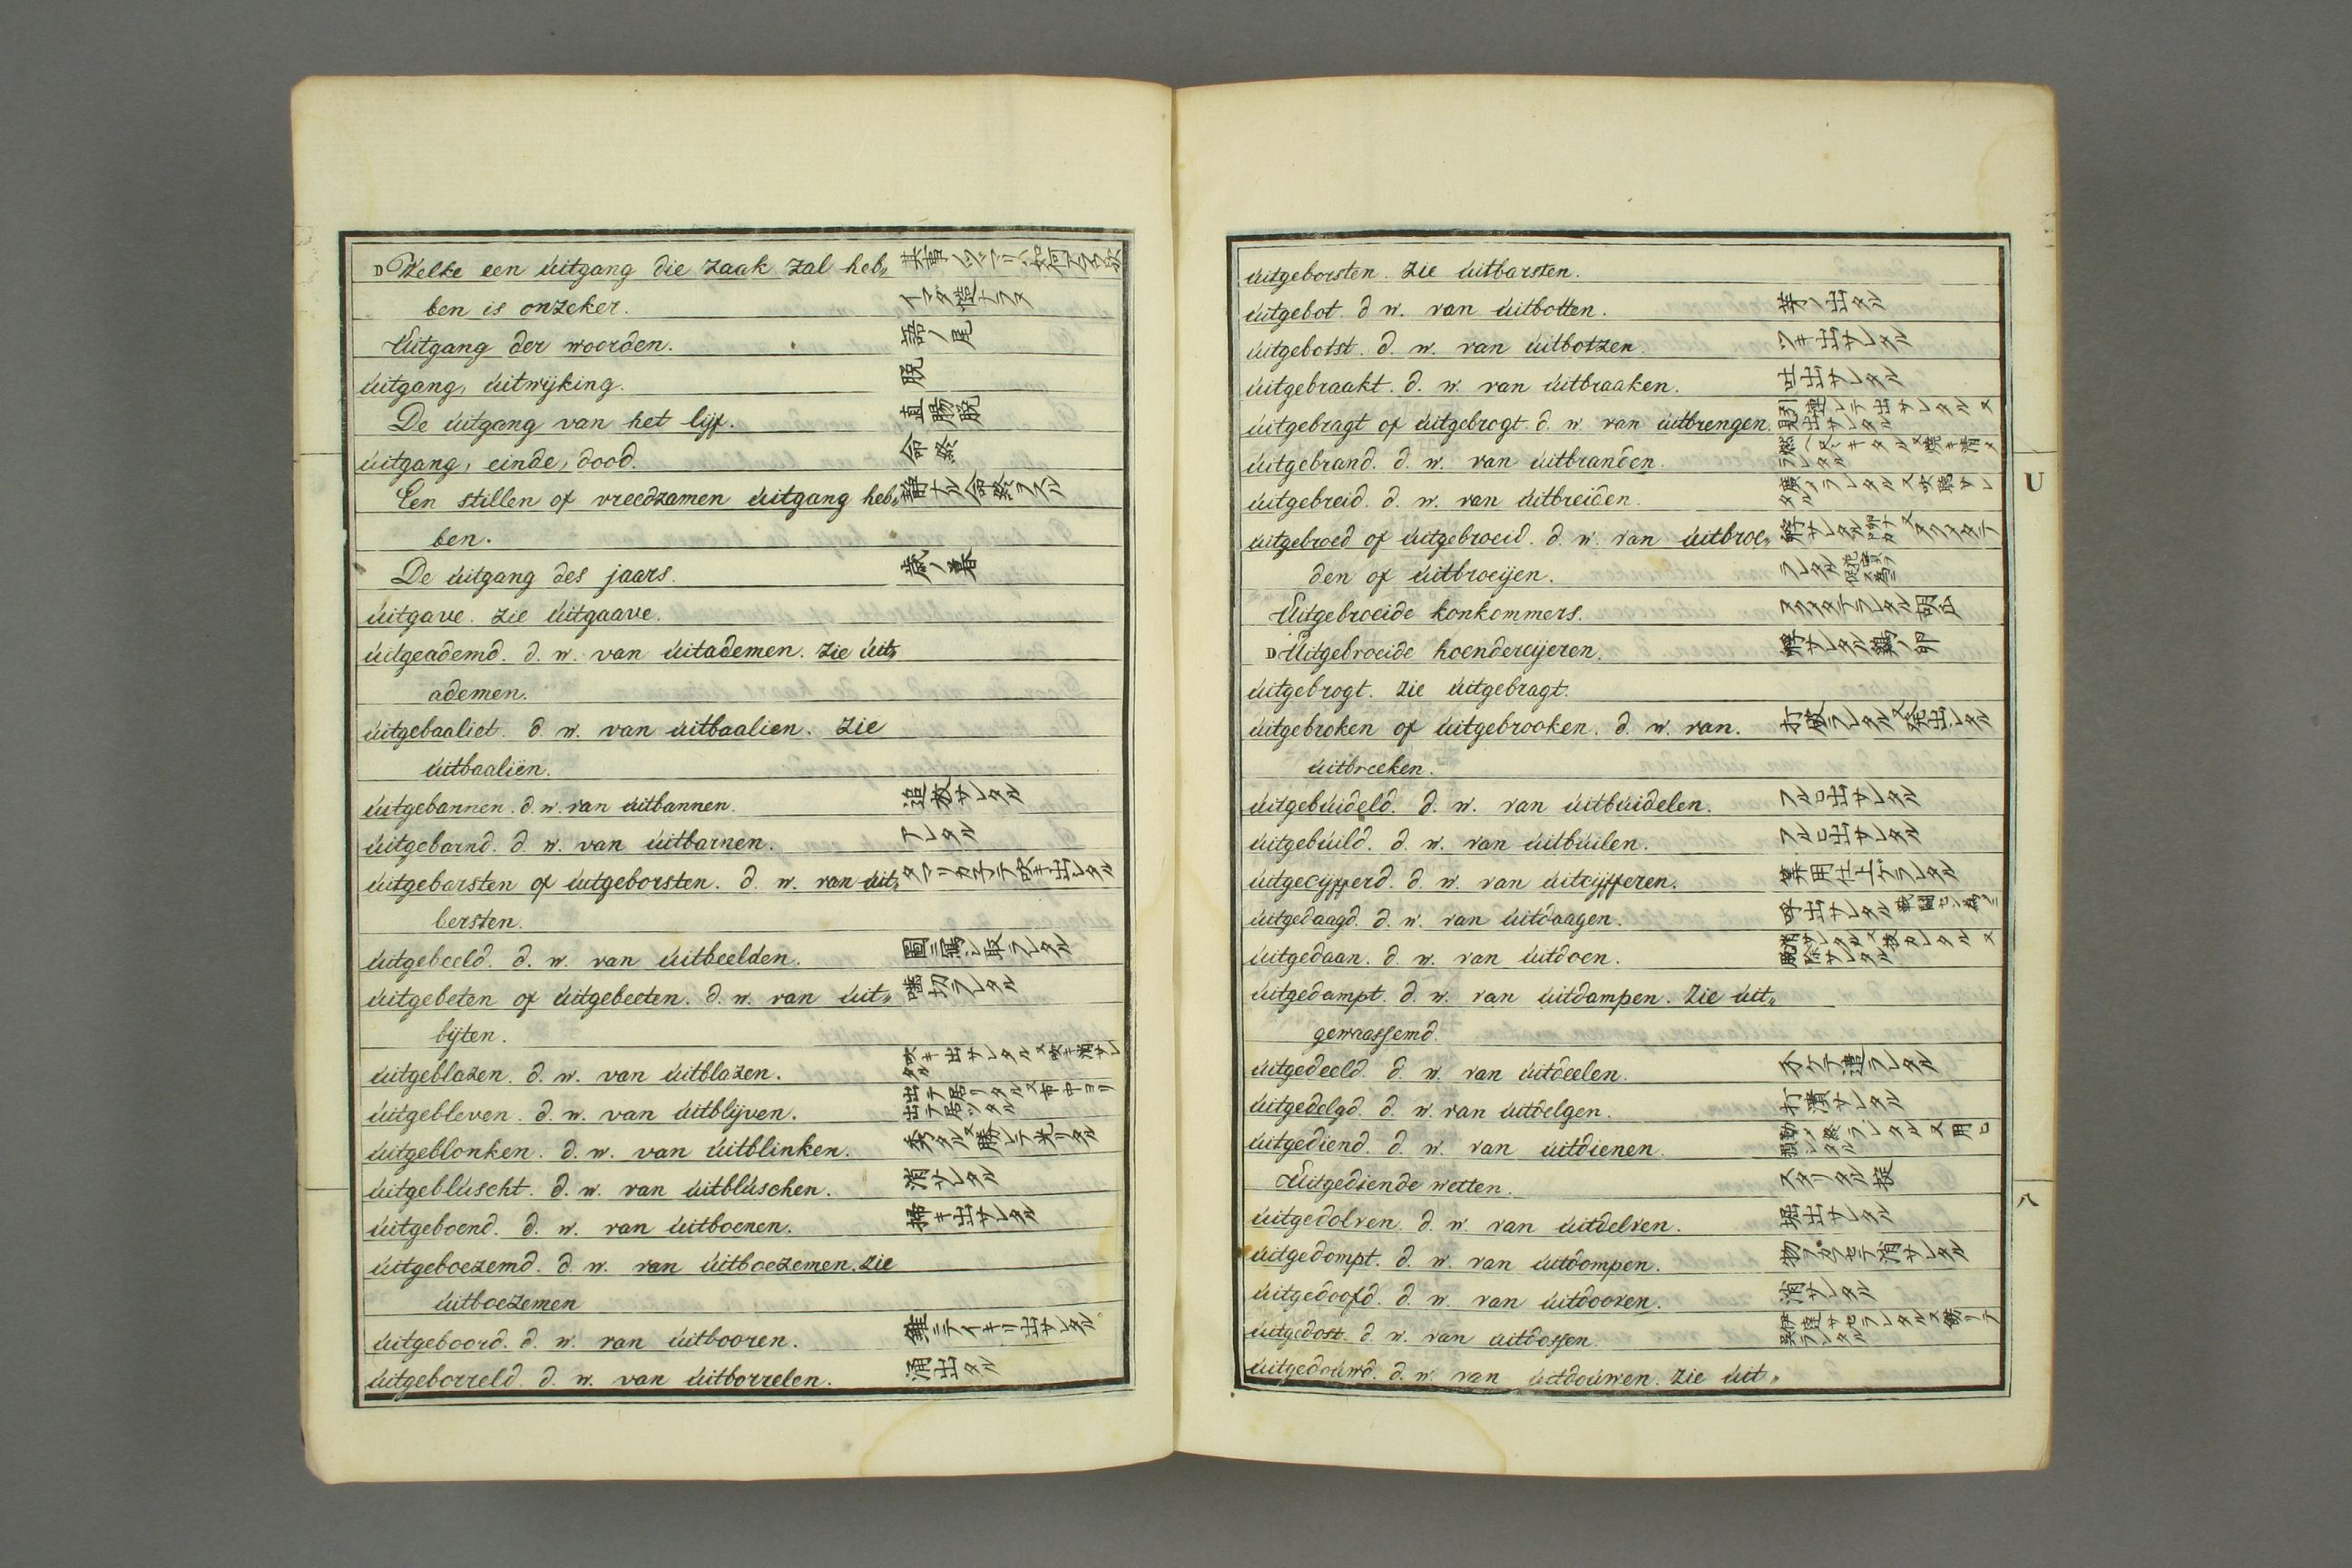 D Welke een uitgang die zaak zal heb„ 其事ノツマリハ如何アラン欤
ben is onzeker. イマタ慥ナラヌ
Uitgang der woorden. 語ノ尾
uitgang, uitwijking. 脱
De uitgang van het lijf. 直腸脱
uitgang, einde, dood. 命終
Een stillen of vreedzamen uitgang heb„ 静ナル命終ヲスル
ben.
De uitgang des jaars. 歳ノ暮
uitgave. zie uitgaave.
uitgeademd. d. w. van uitademen. zie uit„
ademen.
uitgebaaliet. d. w. van uitbaalien. zie
uitbaaliën.
uitgebannen. d. w. van uitbannen. 追放サレタル
uitgebarnd. d. w. van uitbarnen. アレタル
uitgebarsten of uitgeborsten. d. w. van uit„ タマリカネテ吹キ出シタル
bersten.
uitgebeeld. d. w. van uitbeelden. 圖ニ寫シ取ラレタル
uitgebeten of uitgebeeten. d. w. van uit„ 噛切ラレタル
bijten.
uitgeblazen. d. w. van uitblazen. 吹キ出サレタル又吹キ消サレタル
uitgebleven. d. w. van uitblijven. 出テ居リタル又市中ヨリ出テ居ツタル
uitgeblonken. d. w. van uitblinken. 秀タル又勝レテ光リタル
uitgebluscht. d. w. van uitbluschen. 消サレタル
uitgeboend. d. w. van uitboenen. 掃キ出サレタル
uitgeboezemd. d. w. van uitboezemen. zie
uitboezemen
uitgeboord. d. w. van uitbooren. 錐ニテイキリ出サレタル
uitgeborreld. d. w. van uitborrelen. 涌出タル
uitgeborsten. zie uitbarsten.
uitgebot. d w. van uitbotten. 芽ノ出タル
uitgebotst. d. w. van uitbotzen. ツキ出サレタル
uitgebraakt. d. w. van uitbraaken. 吐出サレタル
uitgebragt of uitgebrogt. d. w. van uitbrengen. 引連レテ出サレタル又
uitgebrand. d. w. van uitbranden.
uitgebreid. d. w. van uitbreiden.
uitgebroed of uitgebroeid. d. w. van uitbroe„
den of uitbroeijen.
Uitgebroeide konkommers.
D Uitgebroeide hoendereijeren. 孵サレタル鶏ノ卵
uitgebrogt. zie uitgebragt.
uitgebroken of uitgebrooken. d. w. van. 打破ラレタル又発出シタル
uitbreeken.
uitgebuideld. d. w. van uitbuidelen. フルロ出サレタル
uitgebuild. d. w. van uitbuilen. フルロ出サレタル
uitgecijfferd. d. w. van uitcijfferen. 算用仕上ケラレタル
uitgedaagd. d. w. van uitdaagen. 呼出サレタル
uitgedaan. d. w. van uitdoen.
uitgedampt. d. w. van uitdampen. zie uit„
gewrassemd.
uitgedeeld. d. w. van uitdeelen. 分ケテ遣ラレタル
uitgedelgd. d. w. van uitdelgen. 打潰サレタル
uitgediend. d. w. van uitdienen.
Uitgediende wetten. スタリタル掟
uitgedolven. d. w. van uitdelven. 堀出サレタル
uitgedompt. d. w. van uitdompen. 物ヲカフセテ消サレタル
uitgedoofd. d. w. van uitdooven. 消サレタル
uitgedost. d. w. van uitdossen.
uitgedouwd. d. w. van uitdouwen. zie uit„
U
八